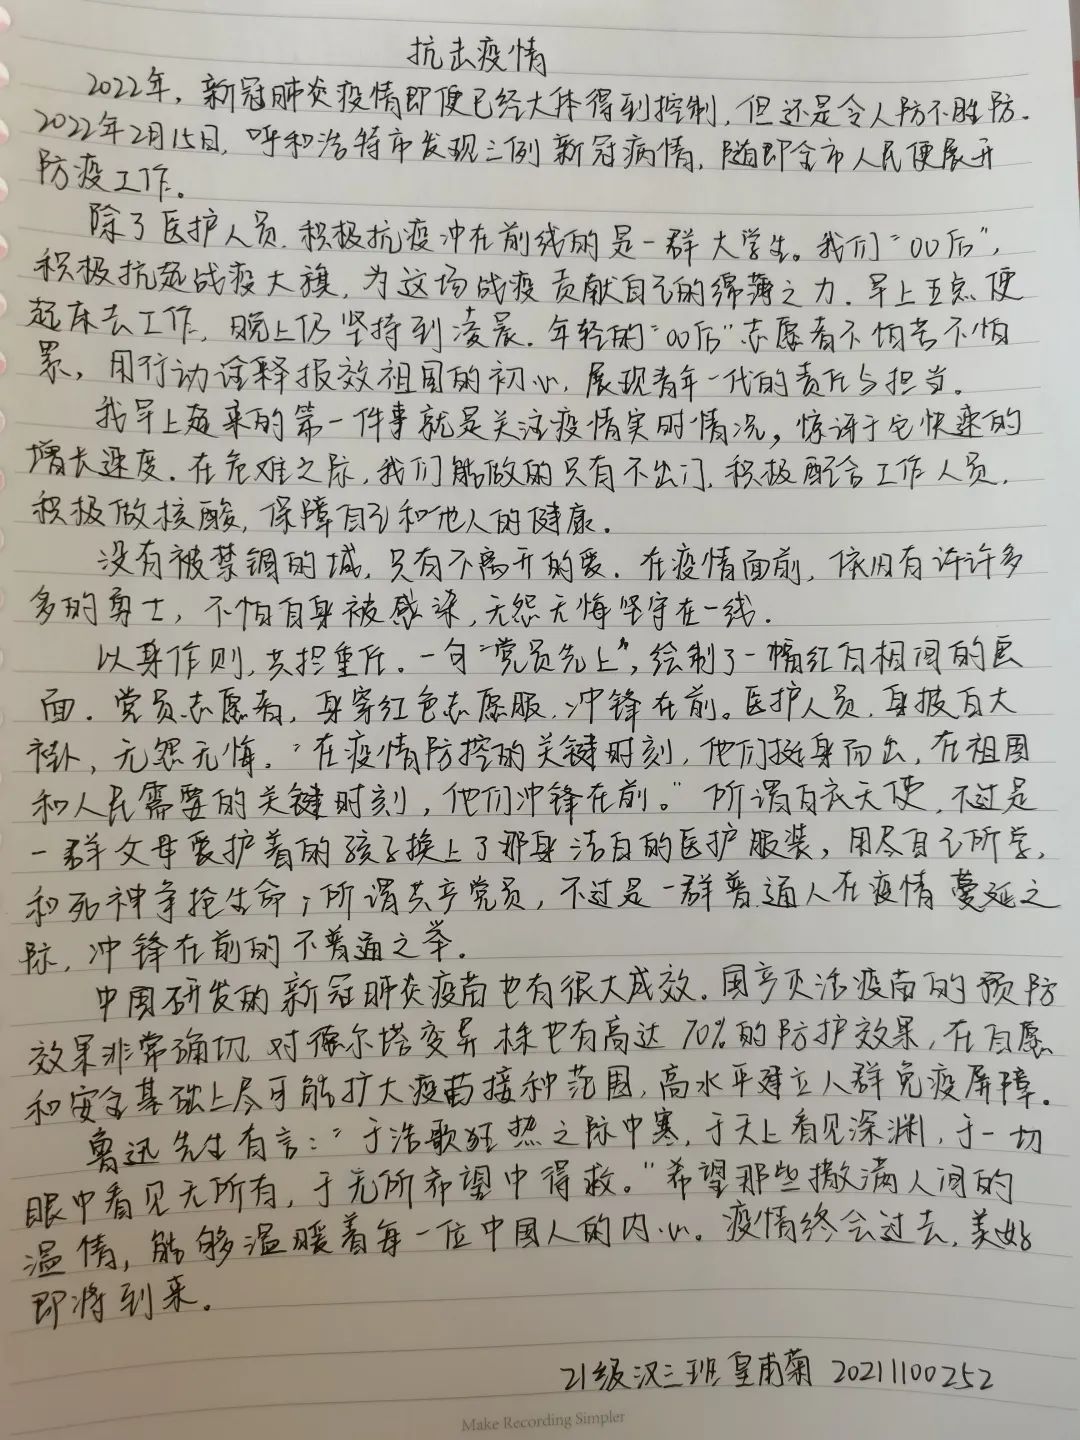 抗击疫情
2022年，新冠肺炎疫情即便已经大体得到控制，但还是令人防不胜防.
2022年2月15日，呼和浩特市发现三例新冠病情，随即全市人民便展开
防疫工作.
除了医护人员，积极抗疫冲在前线的是一群大学生。我们“00后”，
积极抗起战疫大旗，为这场战疫贡献自己的绵薄之力.早上五点便
起床去工作，晚上仍坚持到凌晨.年轻的“00后”志愿者不怕苦不怕
累，用行动诠释报效祖国的初心，展现青年一代的责任与担当.
我早上起来的第一件事就是关注疫情实时情况，惊讶于它快速的
增长速度.在危难之际，我们能做的只有不出门，积极配合工作人员，
积极做核酸，保障自己和他人的健康.
没有被禁锢的城，只有不离开的爱.在疫情面前，依旧有许许多
多的勇士，不怕自身被感染，无怨无悔坚守在一线.
以身作则，共担重任.一句“党员先上”，绘制了一幅红白相间的画
面.党员志愿者，身穿红色志愿服，冲锋在前。医护人员，身披白大
褂，无怨无悔.“在疫情防控的关键时刻，他们挺身而出，在祖国
和人民需要的关键时刻，他们冲锋在前。”所谓白衣天使，不过是
一群父母要护着的孩子换上了那身洁白的医护服装，用尽自己所学，
和死神争抢生命；所谓共产党员，不过是一群普通人在疫情蔓延之
际，冲锋在前的不普通之举.
中国研发的新冠肺炎疫苗也有很大成效.国产灭活疫苗的预防
效果非常确切，对德尔塔变异株也有高达70%的防护效果，在自愿
和安全基础上尽可能扩大疫苗接种范围，高水平建立人群免疫屏障.
鲁迅先生有言：“于浩歌狂热之际中寒，于天上看见深渊，于一切
眼中看见无所有，于无所希望中得救。”希望那些撒满人间的
温情，能够温暖着每一位中国人的内心。疫情终会过去，美好
即将到来。
21级汉三班皇甫菊 20211100252
Make Recording Simpler